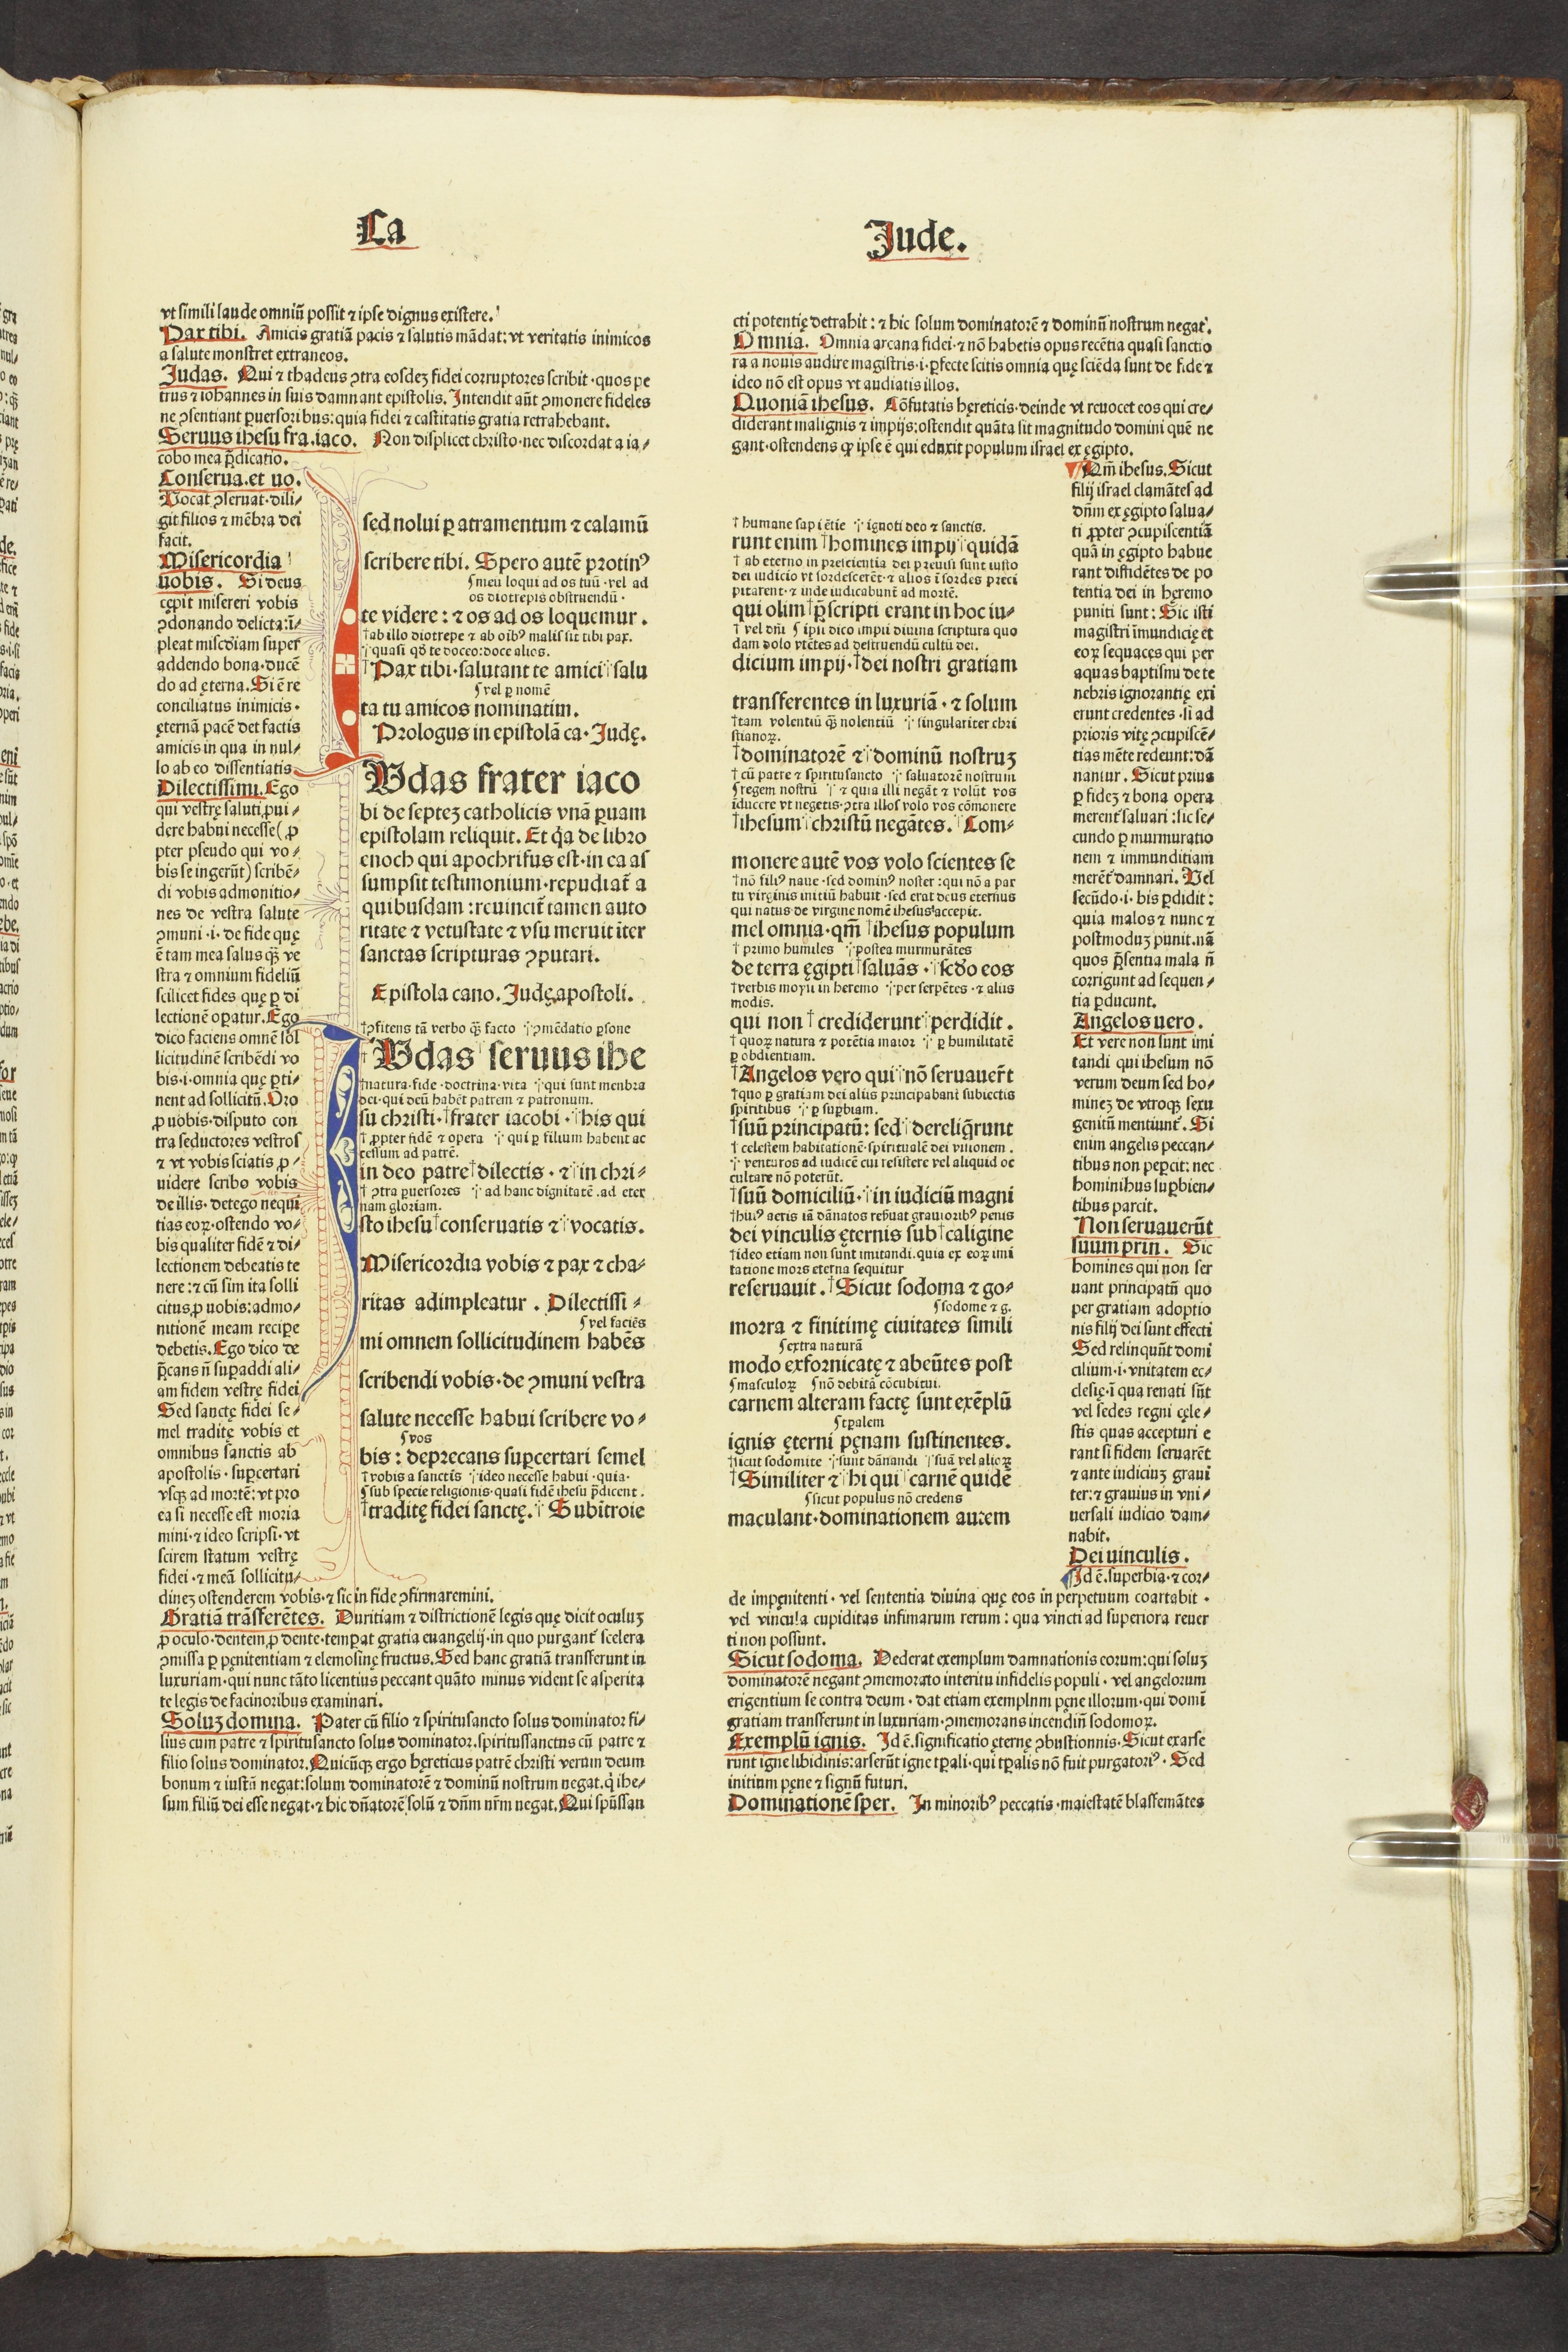 Ca
Jude.
vt simili laude omniū possit ⁊ ipse dignus existere.
Pax tibi. Amicis gratiā pacis ⁊ salutis mādat: vt veritatis inimicos
a salute monstret extraneos.
Judas. Qui ⁊ thadeus ꝯtra eosdeꝫ fidei corruptores scribit · quos pe
trus ⁊ iohannes in suis damnant epistolis. Intendit aūt ꝯmonere fideles
ne ꝯsentiant ꝑuersoribus: quia fidei ⁊ castitatis gratia retrahebant.
Seruus ihesu fra. iaco. Non displicet christo · nec discordat a ia⸗
cobo mea p̄dicatio.
Conserua. et uo.
Vocat ꝯseruat · dili⸗
git filios ⁊ mēbra dei
facit.
Misericordia
uobis. Si deus
cępit misereri vobis
ꝯdonando delicta: ī⸗
pleat miscdiam super
addendo bona · ducē
do ad ęterna. Si ē re
conciliatus inimicis ·
ęternā pacē det factis
amicis in qua in nul⸗
lo ab eo dissentiatis
Dilectissimi. Ego
qui vestrę saluti ꝓui⸗
dere habui necesse (ꝓ
pter pseudo qui vo⸗
bis se ingerūt) scribē⸗
di vobis admonitio⸗
nes de vestra salute
ꝯmuni · i · de fide quę
ē tam mea salus qꝫ̄ ve
stra ⁊ omnium fideliū
scilicet fides quę ꝑ di
lectionē oꝑatur. Ego
dico faciens omnē sol
licitudinē scribēdi vo
bis · i · omnia quę ꝑti⸗
nent ad sollicitū. Oro
ꝓ uobis · disputo con
tra seductores vestros
⁊ vt vobis sciatis ꝓ⸗
uidere scribo vobis
de illis · detego nequi
tias eoꝝ · ostendo vo⸗
bis qualiter fidē ⁊ di⸗
lectionem debeatis te
nere: ⁊ cū sim ita solli
citus ꝓ uobis: admo⸗
nitionē meam recipe
debetis. Ego dico de
p̄cans ñ suꝑaddi ali⸗
am fidem vestrę fidei
Sed sanctę fidei se⸗
mel traditę vobis et
omnibus sanctis ab
apostolis · suꝑcertari
vsqꝫ ad mortē: vt pro
ea si necesse est moria
mini · ⁊ ideo scripsi · vt
scirem statum vestrę
fidei · ⁊ meā sollicitu⸗
dineꝫ ostenderem vobis · ⁊ sic in fide ꝯfirmaremini.
Gratiā trāsferētes. Duritiam ⁊ districtionē legis quę dicit oculuꝫ
ꝓ oculo · dentem ꝓ dente · temꝑat gratia euangelij · in quo purgant᷑ scelera
ꝯmissa ꝑ pęnitentiam ⁊ elemosinę fructus. Sed hanc gratiā transferunt in
luxuriam · qui nunc tāto licentius peccant quāto minus vident se asperita
te legis de facinoribus examinari.
Soluꝫ domina. Pater cū filio ⁊ spiritusancto solus dominator · fi⸗
lius cum patre ⁊ spiritusancto solus dominator. spiritussanctus cū patre ⁊
filio solus dominator. Quicūqꝫ ergo hęreticus patrē christi verum deum
bonum ⁊ iustū negat: solum dominatorē ⁊ dominū nostrum negat. q̇ ihe⸗
sum filiū dei esse negat · ⁊ hic dn̄atorē solū ⁊ dn̄m nr̄m negat. Qui spūssan
sed nolui ꝑ atramentum ⁊ calamū
scribere tibi. Spero autē protinꝰ
meū loqui ad os tuū · vel ad
os diotrepis obstruendū ·
te videre: ⁊ os ad os loquemur.
†ab illo diotrepe ⁊ ab oībꝰ malis sit tibi pax.
quasi qd̄ te doceo: doce alios.
†Pax tibi · salutant te amici salu
vel ꝑ nomē
ta tu amicos nominatim.
Prologus in epistolā ca · Judę.
Vdas frater iaco
bi de septeꝫ catholicis vnā ꝑuam
epistolam reliquit. Et q̇a de libro
enoch qui apochrifus est · in ea as
sumpsit testimonium · repudiat᷑ a
quibusdam: reuincit᷑ tamen auto
ritate ⁊ vetustate ⁊ vsu meruit īter
sanctas scripturas ꝯputari.
Epistola cano. Judę apostoli.
†ꝯfitens tā verbo qꝫ̄ facto ꝯmēdatio ꝑsone
†Vdas seruus ihe
†natura · fide · doctrina · vita qui sunt menbra
dei · qui deū habēt patrem ⁊ patronum.
su christi · †frater iacobi · his qui
†ꝓpter fidē ⁊ opera qui ꝑ filium habent ac
cessum ad patrē.
in deo patre †dilectis · ⁊ in chri⸗
†ꝯtra ꝑuersores ad hanc dignitatē · ad eter
nam gloriam.
sto ihesu †conseruatis ⁊ vocatis.
Misericordia vobis ⁊ pax ⁊ cha⸗
ritas adimpleatur. Dilectissi⸗
vel faciēs
mi omnem sollicitudinem habēs
scribendi vobis · de ꝯmuni vestra
salute necesse habui scribere vo⸗
vos
bis: deprecans suꝑcertari semel
†vobis a sanctis ideo necesse habui · quia ·
sub specie religionis · quasi fidē ihesu p̄dicent.
†traditę fidei sanctę. Subītroie
cti potentię detrahit: ⁊ hic solum dominatorē ⁊ dominū nostrum negat.
Omnia. Omnia arcana fidei · ⁊ nō habetis opus recētia quasi sanctio
ra a nouis audire magistris · i · ꝑfecte scitis omnia quę sciēda sunt de fide ⁊
ideo nō est opus vt audiatis illos.
Quoniā ihesus. Cōfutatis hęreticis · deinde vt reuocet eos qui cre⸗
diderant malignis ⁊ impijs: ostendit quāta sit magnitudo domini quē ne
gant · ostendens qꝫ ipse ē qui eduxit populum israel ex ęgipto.
†humane sapiētie ignoti deo ⁊ sanctis.
runt enim †homines impij quidā
†ab eterno in prescientia dei previsi sunt iusto
dei iudicio vt sordescerēt · ⁊ alios ī sordes preci
pitarent · ⁊ inde iudicabunt᷑ ad mortē.
qui olim †p̄scripti erant in hoc iu⸗
†vel dn̄i ipsi dico impii diuina scriptura quo
dam dolo vtētes ad destruendū cultū dei.
dicium impij · †dei nostri gratiam
transferentes in luxuriā · ⁊ solum
†tam volentiū qꝫ̄ nolentiū singulariter chri
stianoꝝ.
†dominatorē ⁊ dominū nostruꝫ
†cū patre ⁊ spiritusancto saluatorē nostrum
regem nostrū ⁊ quia illi negāt ⁊ volūt vos
iducere vt negetis · ꝯtra illos volo vos cōmonere
†ihesum christū negātes. Com⸗
monere autē vos volo scientes se
†nō filiꝰ naue · sed dominꝰ noster: qui nō a par
tu virginis initiū habuit · sed erat deus eternus
qui natus de virgine nomē ihesus accepit.
mel omnia · qm̄ †ihesus populum
†primo humiles postea murmurātes
de terra ęgipti †saluās · scd̄o eos
†verbis moysi in heremo per serpētes · ⁊ aliis
modis.
qui non †crediderunt perdidit.
†quoꝝ natura ⁊ potētia maior ꝑ humilitatē
ꝑ obdientiam.
†Angelos vero qui nō seruauer̄t
†quo ꝑ gratiam dei aliis principabant᷑ subiectis
spiritibus ꝑ suꝑbiam.
†suū principatū: sed dereliq̄runt
†celestem habitationē · spiritualē dei visionem.
venturos ad iudicē cui resistere vel aliquid oc
cultare nō poterūt.
†suū domiciliū · in iudiciū magni
†huiꝰ aeris iā dānatos reẜuat grauioribꝰ penis
dei vinculis ęternis sub †caligine
†ideo etiam non sunt imitandi. quia ex eoꝝ imi
tatione mors eterna sequitur
reseruauit. †Sicut sodoma ⁊ go⸗
sodome ⁊ g.
morra ⁊ finitimę ciuitates simili
extra naturā
modo exfornicatę ⁊ abeūtes post
masculoꝝ nō debitā cōcubitui.
carnem alteram factę sunt exēplū
tꝑalem
ignis ęterni pęnam sustinentes.
†sicut sodomite sunt dānandi suā vel alioꝝ
†Similiter ⁊ hi qui carnē quidē
sicut populus nō credens
maculant · dominationem autem
Qm̄ ihesus. Sicut
filij israel clamātes ad
dn̄m ex ęgipto salua⸗
ti ꝓpter ꝯcupiscentiā
quā in ęgipto habue
rant diffidētes de po
tentia dei in hęremo
puniti sunt: Sic isti
magistri īmundicię et
eoꝝ sequaces qui per
aquas baptismi de te
nebris ignorantię exi
erunt credentes · si ad
prioris vitę ꝯcupiscē⸗
tias mēte redeunt: dā
nantur. Sicut prius
ꝑ fideꝫ ⁊ bona opera
merent᷑ saluari: sic se⸗
cundo ꝑ murmuratio
nem ⁊ immunditiam
merēt᷑ damnari. Vel
secūdo · i · bis ꝑdidit:
quia malos ⁊ nunc ⁊
postmoduꝫ punit. nā
quos p̄sentia mala ñ
corrigunt ad sequen⸗
tia ꝑducunt.
Angelos uero.
Et vere non sunt imi
tandi qui ihesum nō
verum deum sed ho⸗
mineꝫ de vtroqꝫ sexu
genitū mentiunt᷑. Si
enim angelis peccan⸗
tibus non peꝑcit: nec
hominibus suꝑbien⸗
tibus parcit.
Non seruauerūt
suum prin. Sic
homines qui non ser
uant principatū quo
per gratiam adoptio
nis filij dei sunt effecti
Sed relinquūt domi
cilium · i · vnitatem ec⸗
clesię · ī qua renati sūt
vel sedes regni cęle⸗
stis quas accepturi e
rant si fidem seruarēt
⁊ ante iudiciuꝫ graui
ter: ⁊ grauius in vni⸗
uersali iudicio dam⸗
nabit.
Dei uinculis.
Id ē. superbia · ⁊ cor⸗
de impęnitenti · vel sententia diuina que eos in perpetuum coartabit ·
vel vincula cupiditas infimarum rerum: qua vincti ad superiora reuer
ti non possunt.
Sicut sodoma. Dederat exemplum damnationis eorum: qui soluꝫ
dominatorē negant ꝯmemorato interitu infidelis populi · vel angelorum
erigentium se contra deum · dat etiam exemplnm pęne illorum · qui domī
gratiam transferunt in luxuriam · ꝯmemorans incendiū sodomoꝝ.
Exemplū ignis. Id ē. significatio ęternę ꝯbustionnis · Sicut exarse
runt igne libidinis: arserūt igne tꝑali · qui tꝑalis nō fuit purgatoriꝰ · Sed
initium pęne ⁊ signū futuri.
Dominationē sper. In minoribꝰ peccatis · maiestatē blasfemātes